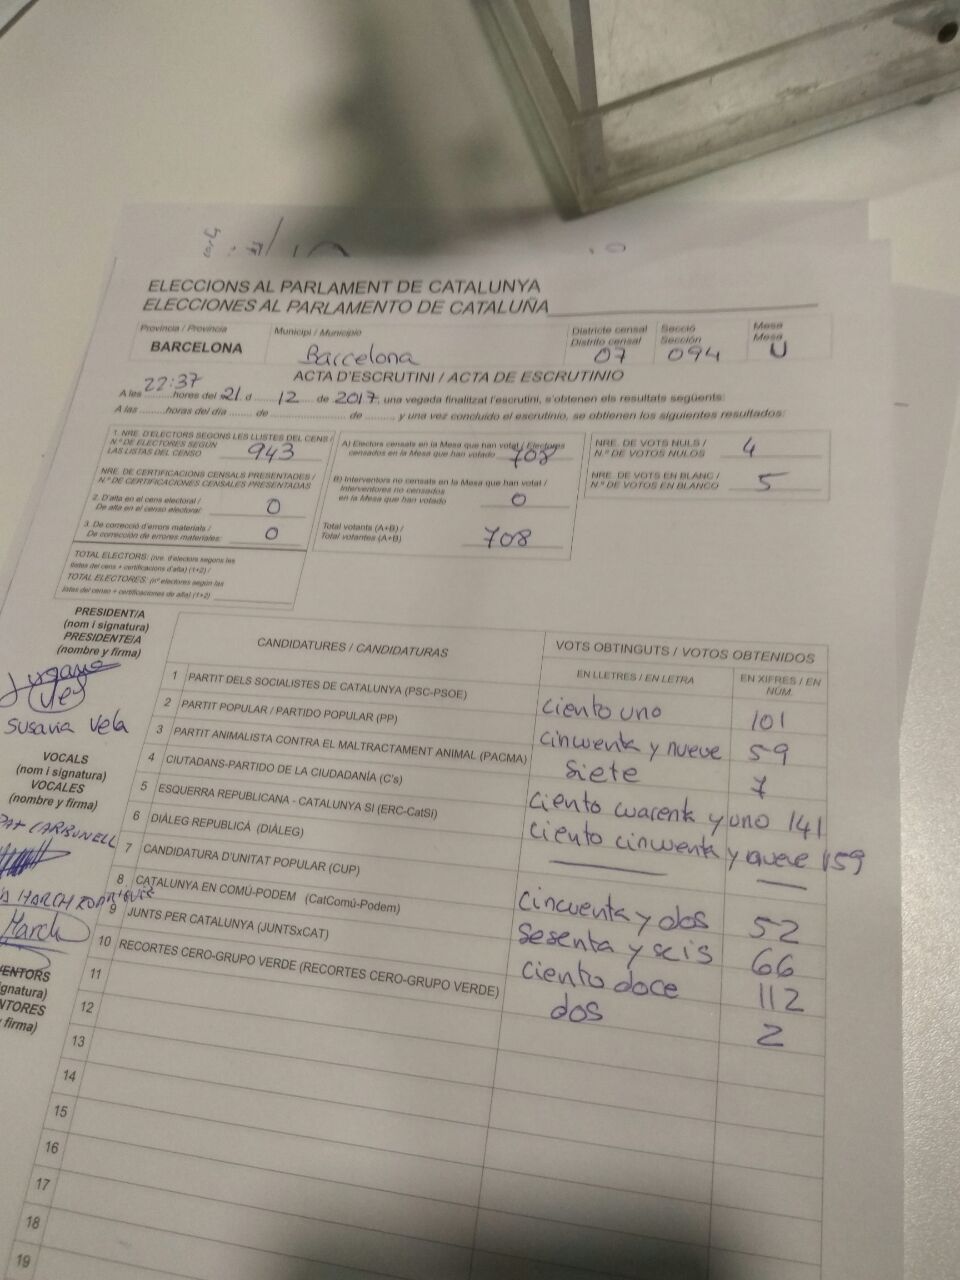 ELECCIONS AL PARLAMENT DE CATALUNYA
ELECCIONES AL PARLAMENTO DE CATALUÑA
Província / Provincia
BARCELONA
Municipi / Municipio
Barcelona
Districte censal
Distrito censal
07
Secció
Sección
094
Mesa
Mesa
U
ACTA D'ESCRUTINI / ACTA DE ESCRUTINIO
A les 22:37 hores del 21 d 12 de 2017, una vegada finalitzat l'escrutini, s'obtenen els resultats següents:
A las ........horas del día ....... de ................ de ........ y una vez concluido el escrutinio, se obtienen los siguientes resultados:
1. NRE. D'ELECTORS SEGONS LES LLISTES DEL CENS /
N.º DE ELECTORES SEGÚN
LAS LISTAS DEL CENSO 943
NRE. DE CERTIFICACIONS CENSALS PRESENTADES /
N.º DE CERTIFICACIONES CENSALES PRESENTADAS
2. D'alta en el cens electoral /
De alta en el censo electoral: 0
3. De correcció d'errors materials /
De corrección de errores materiales: 0
TOTAL ELECTORS: (nre. d'electors segons les
llistes del cens + certificacions d'alta) (1+2) /
TOTAL ELECTORES: (nº electores según las
listas del censo + certificaciones de alta) (1+2)
A) Electors censats en la Mesa que han votat / Electores
censados en la Mesa que han votado 708
B) Interventors no censats en la Mesa que han votat /
Interventores no censados
en la Mesa que han votado 0
Total votants (A+B) /
Total votantes (A+B) 708
NRE. DE VOTS NULS /
N.º DE VOTOS NULOS 4
NRE. DE VOTS EN BLANC /
N.º DE VOTOS EN BLANCO 5
PRESIDENT/A
(nom i signatura)
PRESIDENTE/A
(nombre y firma)
Susana Vela
VOCALS
(nom i signatura)
VOCALES
(nombre y firma)
CARBONELL
MARCH
March
ENTORS
gnatura)
NTORES
firma)
CANDIDATURES / CANDIDATURAS
VOTS OBTINGUTS / VOTOS OBTENIDOS
EN LLETRES / EN LETRA
EN XIFRES / EN NÚM.
1 PARTIT DELS SOCIALISTES DE CATALUNYA (PSC-PSOE) ciento uno 101
2 PARTIT POPULAR / PARTIDO POPULAR (PP) cincuenta y nueve 59
3 PARTIT ANIMALISTA CONTRA EL MALTRACTAMENT ANIMAL (PACMA) siete 7
4 CIUTADANS-PARTIDO DE LA CIUDADANÍA (C's) ciento cuarenta y uno 141
5 ESQUERRA REPUBLICANA - CATALUNYA SI (ERC-CatSí) ciento cincuenta y nueve 159
6 DIÀLEG REPUBLICÀ (DIÀLEG) — —
7 CANDIDATURA D'UNITAT POPULAR (CUP) cincuenta y dos 52
8 CATALUNYA EN COMÚ-PODEM (CatComú-Podem) sesenta y seis 66
9 JUNTS PER CATALUNYA (JUNTSxCAT) ciento doce 112
10 RECORTES CERO-GRUPO VERDE (RECORTES CERO-GRUPO VERDE) dos 2
11
12
13
14
15
16
17
18
19